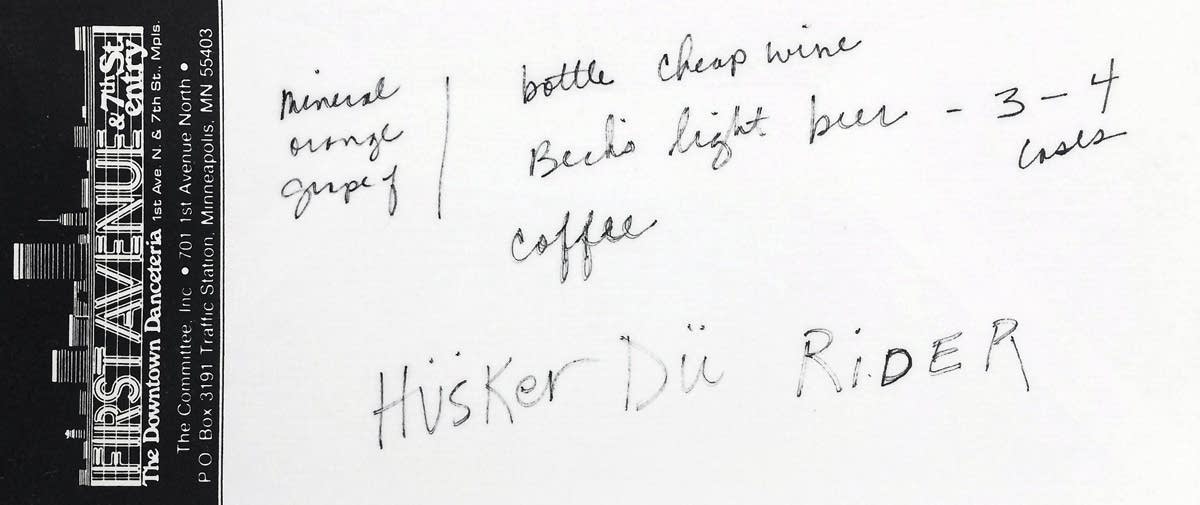 FIRST AVENUE & 7th St. entry
The Downtown Danceteria 1st Ave. N. & 7th St., Mpls.
The Committee, Inc • 701 1st Avenue North •
P O Box 3191 Traffic Station, Minneapolis, MN 55403
mineral
orange
grape f
bottle cheap wine
Beck's light beer - 3-4
cases
coffee
HÜSKer DÜ RiDER